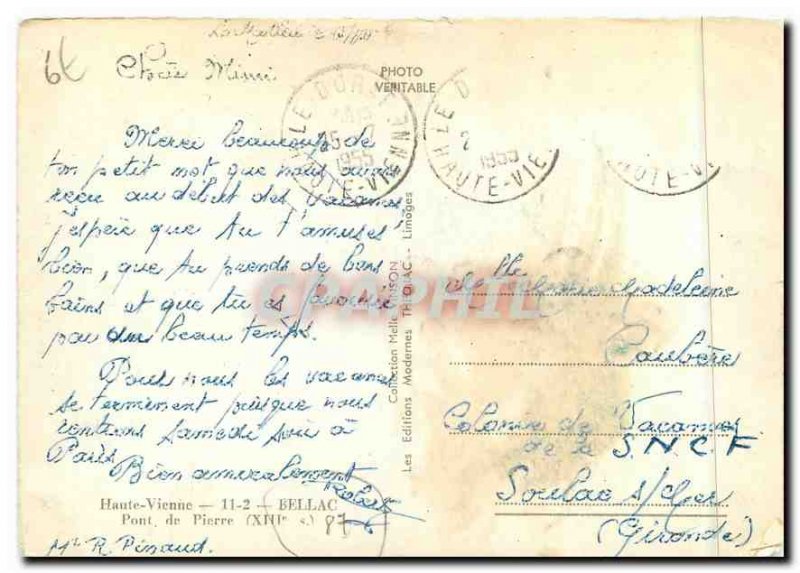 6t
Chère Mimi
PHOTO
VERITABLE
LE DORAT
15 -7
1955
HAUTE-VIENNE
LE D
2
1955
HAUTE-VIE
HAUTE-VI
Merci beaucoup de
ton petit mot que nous avons
reçu au début des vacances
j'espère que tu t'amuses
bien, que tu prends de bons
bains et que tu es
par du beau temps.
Pour nous les vacances
se terminent puisque nous
rentrons samedi soir à
Paris
Bien amicalement
Haute-Vienne — 11-2 — BELLAC
Pont de Pierre (XIIIe s.)
87
Mr R. Pinaud.
Collection Melle PINSON
Les Editions Modernes THEOJAC - Limoges
CARAPHIL
Melle Madeleine
Caubère
Colonie de Vacances
de la S.N.C.F
Soulac s/Mer
(Gironde)